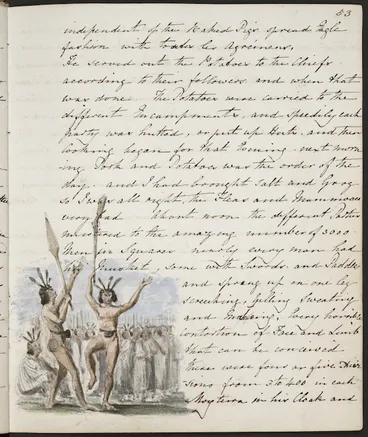 53
independent of the Naked Pigs spread Eagle
fashion with
He served out the Potatoes to the Chiefs
according to their followers and when that
was done. The Potatoes were carried to the
different Encampments, and speedily each
party was hutted, or put up Huts, and then
cooking began for that Evening. next morn
ing Pork and Potatoes was the order of the
day. and I had brought Salt and Grog
So I was all right, the Fleas and
very bad. About noon the different
mustered to the amazing number of 3000
Men in Squares nearly every man had
his Musket, some with Swords and Paddles
and Sprang up on one leg
screeching, yelling Sweating
and every horrible
contortion of Face and Limb
that can be conceived
there were four or five Divi
sions from 3 to 400 in each
in his Cloak and